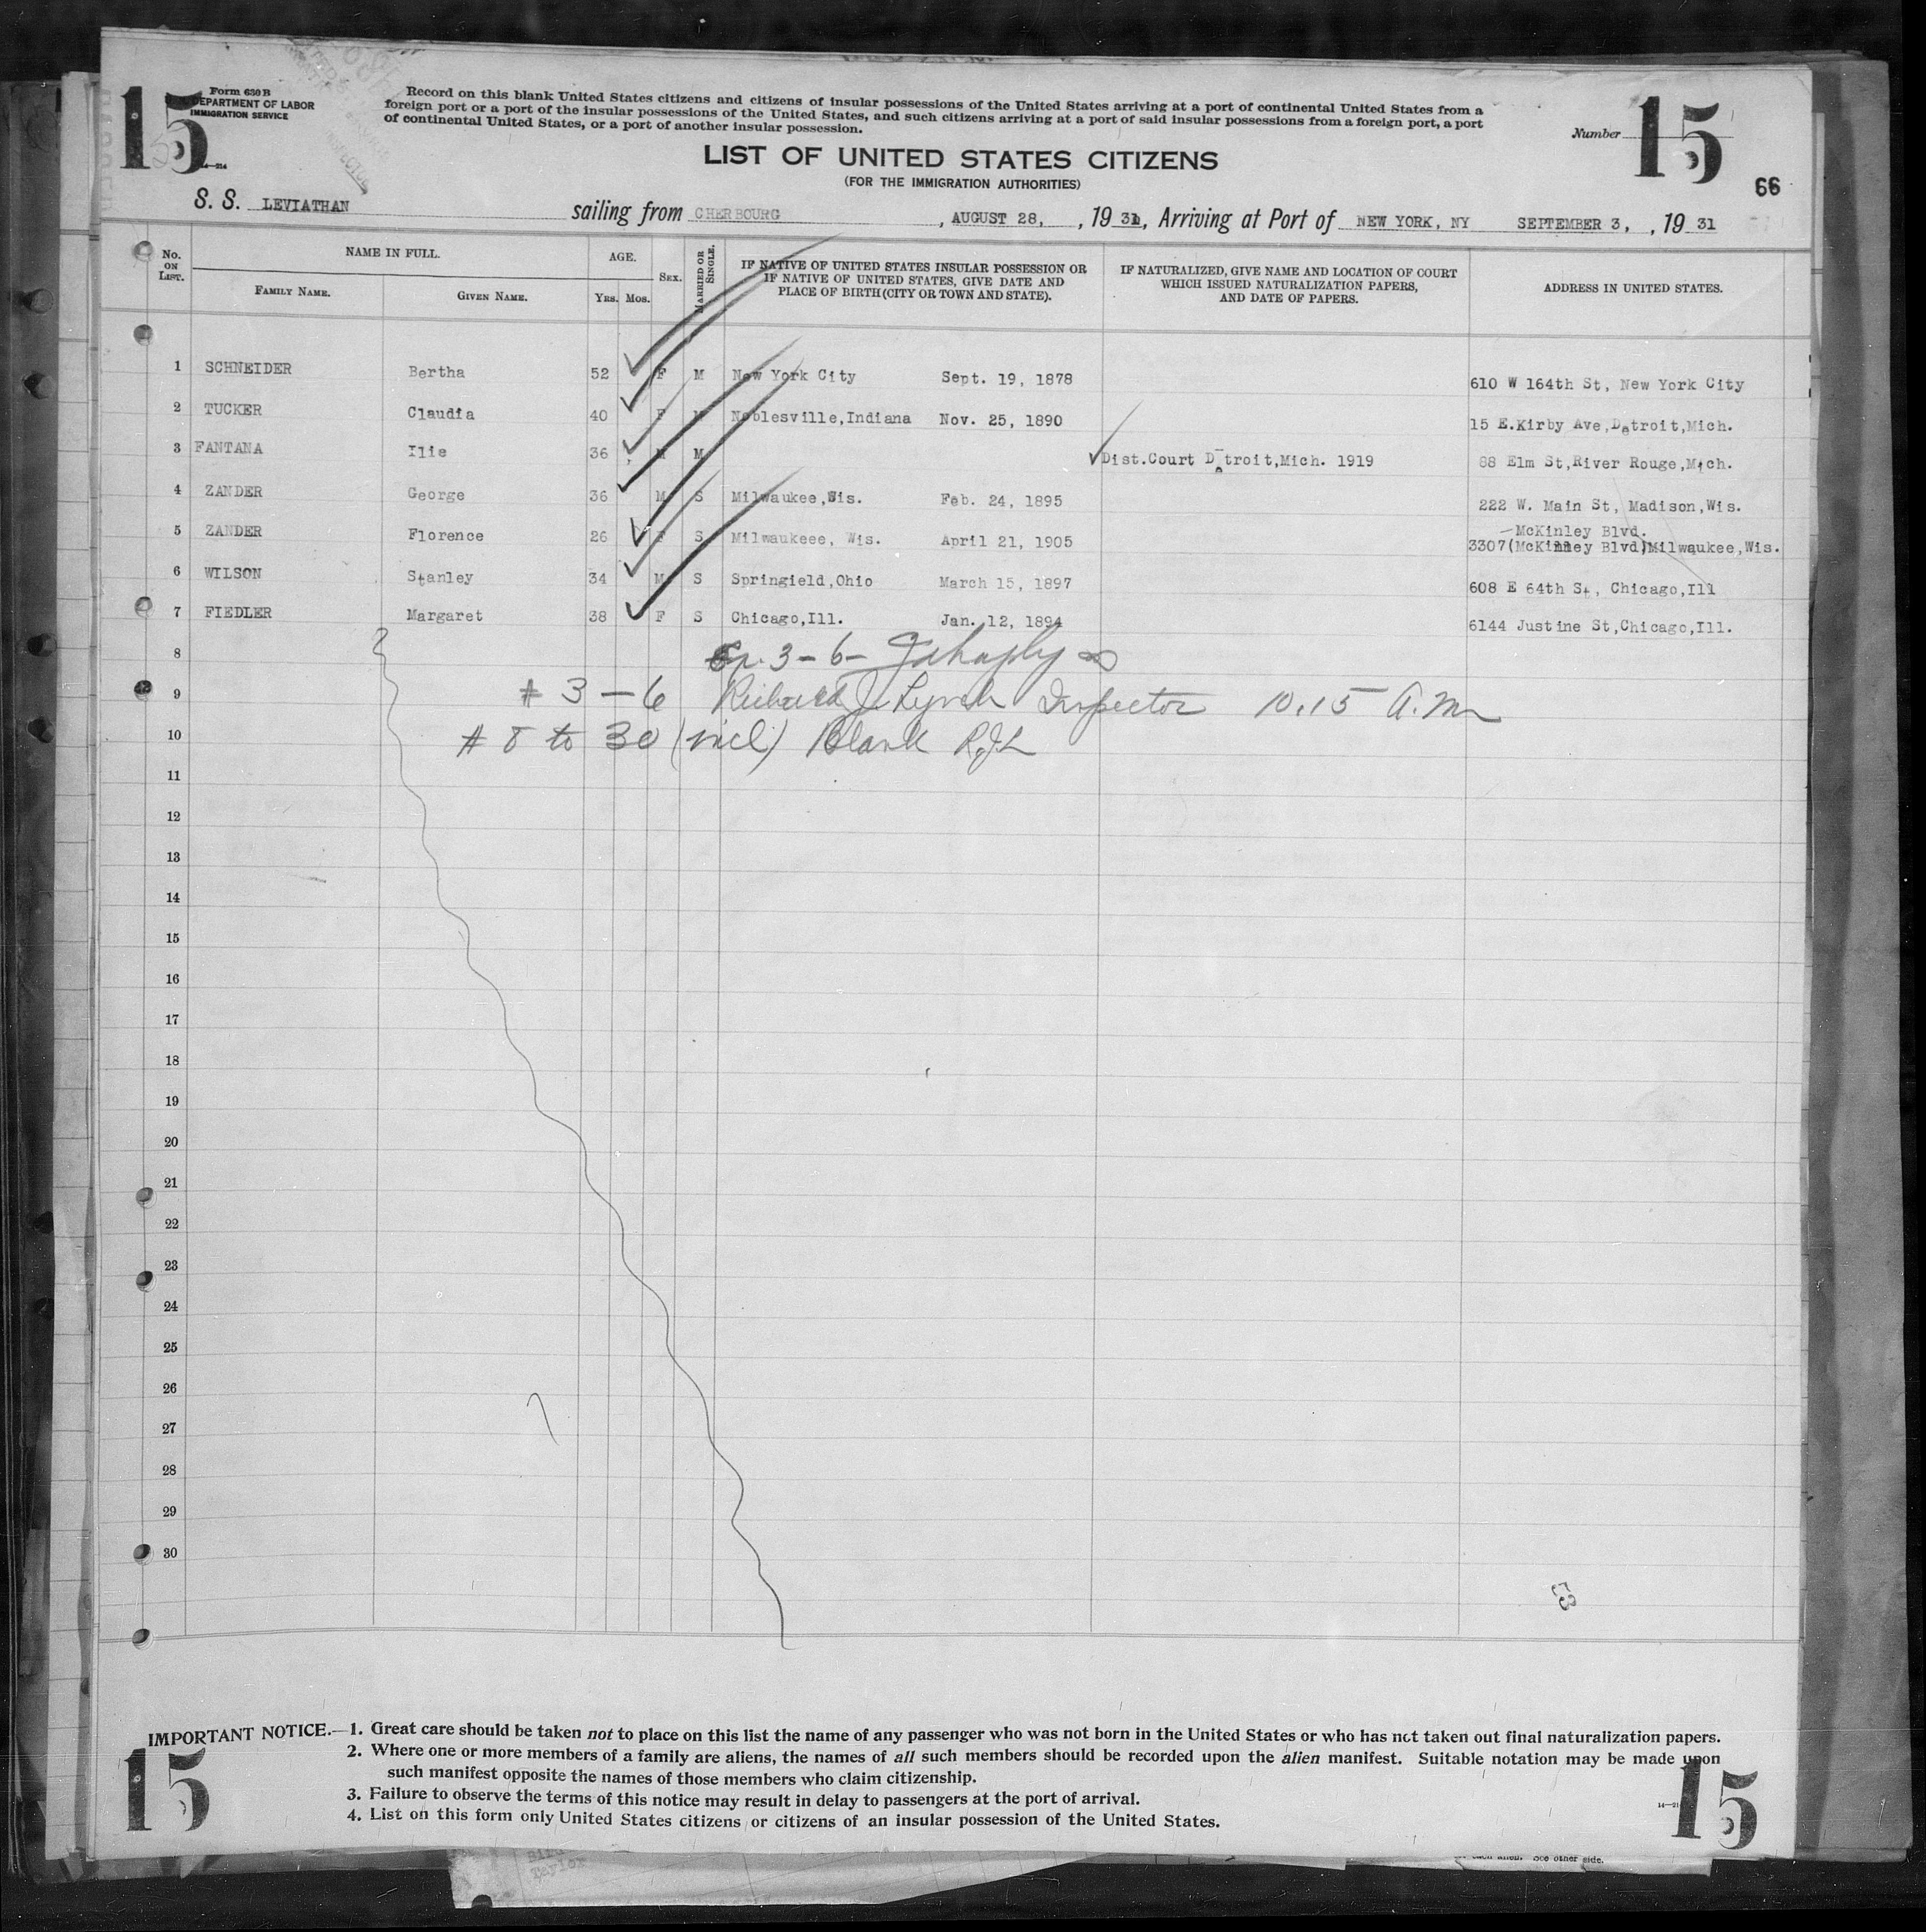 15
Form 630 B
DEPARTMENT OF LABOR
IMMIGRATION SERVICE
Record on this blank United States citizens and citizens of insular possessions of the United States arriving at a port of continental United States from a
foreign port or a port of the insular possessions of the United States, and such citizens arriving at a port of said insular possessions from a foreign port, a port
of continental United States, or a port of another insular possession.
Number 15
LIST OF UNITED STATES CITIZENS
(FOR THE IMMIGRATION AUTHORITIES)
66
S. S. LEVIATHAN sailing from CHERBOURG, AUGUST 28, , 19 31, Arriving at Port of NEW YORK, NY SEPTEMBER 3, , 19 31
No. ON LIST. NAME IN FULL. FAMILY NAME. GIVEN NAME. AGE. YRS. MOS. SEX. MARRIED OR SINGLE. IF NATIVE OF UNITED STATES INSULAR POSSESSION OR IF NATIVE OF UNITED STATES, GIVE DATE AND PLACE OF BIRTH (CITY OR TOWN AND STATE). IF NATURALIZED, GIVE NAME AND LOCATION OF COURT WHICH ISSUED NATURALIZATION PAPERS, AND DATE OF PAPERS. ADDRESS IN UNITED STATES.
1 SCHNEIDER Bertha 52 F M New York City Sept. 19, 1878 610 W 164th St, New York City
2 TUCKER Claudia 40 F M Noblesville,Indiana Nov. 25, 1890 15 E.Kirby Ave,Detroit,Mich.
3 FANTANA Ilie 36 M M Dist.Court Detroit,Mich. 1919 88 Elm St,River Rouge,Mich.
4 ZANDER George 36 M S Milwaukee,Wis. Feb. 24, 1895 222 W. Main St, Madison,Wis.
McKinley Blvd.
5 ZANDER Florence 26 F S Milwaukeee, Wis. April 21, 1905 3307(McKinley Blvd)Milwaukee,Wis.
6 WILSON Stanley 34 M S Springield,Ohio March 15, 1897 608 E 64th St, Chicago,Ill
7 FIEDLER Margaret 38 F S Chicago,Ill. Jan. 12, 1894 6144 Justine St,Chicago,Ill.
8 3-6-
9 # 3 - 6 Richard J. Lynch Inspector 10.15 A.M
10 # 8 to 30 (incl) Blank RJL
11
12
13
14
15
16
17
18
19
20
21
22
23
24
25
26
27
28
29
30
IMPORTANT NOTICE.—1. Great care should be taken not to place on this list the name of any passenger who was not born in the United States or who has not taken out final naturalization papers.
2. Where one or more members of a family are aliens, the names of all such members should be recorded upon the alien manifest. Suitable notation may be made upon
such manifest opposite the names of those members who claim citizenship.
3. Failure to observe the terms of this notice may result in delay to passengers at the port of arrival.
4. List on this form only United States citizens or citizens of an insular possession of the United States.
15
15
Taylor
See other side.